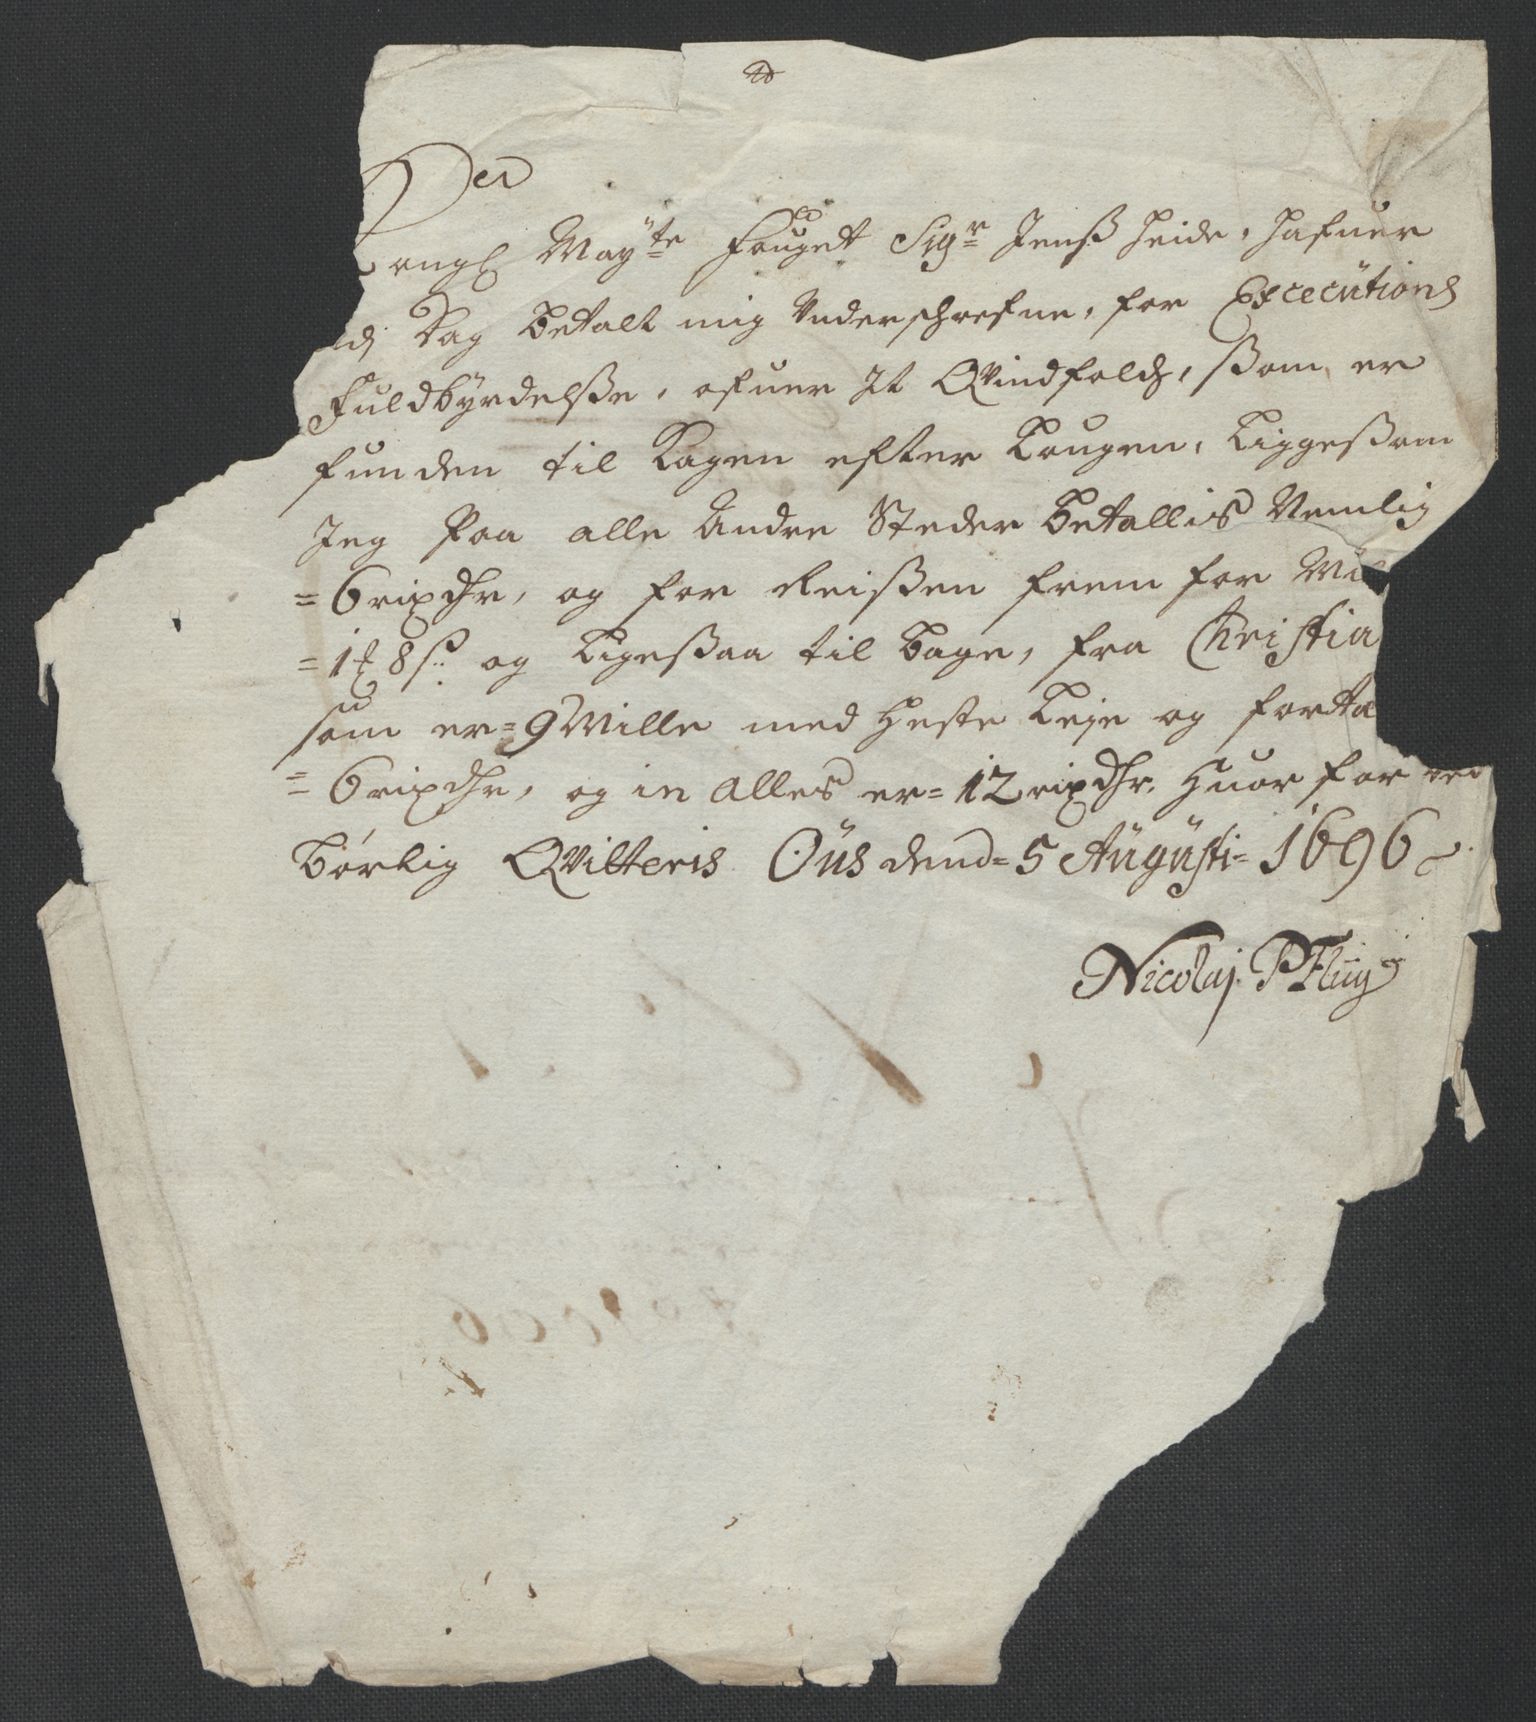 Der
ongl Mayte Fouget Sigr Jenß Heide, Hafuer
dj Dag betalt mig Underschrefne, for Executions
Fuldbyrdelße, ofuer It Qvindfolch, ßom er
funden til Kagen efter Lougen, Liggeßom
Jeg Paa alle Andre Steder betallis Nemlig
=6 rixdhr, og for Reißen frem for Mil
=1 8 s. og Ligeßaa til bage, fra Christia
som er=9 Mille med Heste Leje og fortæ
=6 rixdhr, og in Alles er=12 rixdhr. Huor for
børlig Qvitteris Öüs dend=5 Aügüsti=1696
Nicolaj Pflüg